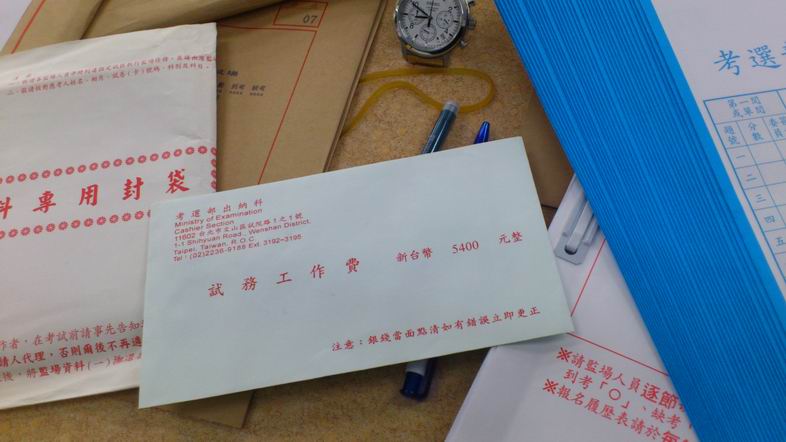 07
料專用封袋
作者，在考試前請事先告知
請人代理，否則爾後不再遴
後，將監場資料(一)
考選部出納科
Ministry of Examination
Cashier Section
11602 台北市文山區試院路1之1號
1-1 Shihyuan Road., Wenshan District,
Taipei, Taiwan, R.O.C.
Tel：(02)2236-9188 Ext. 3192~3195
試務工作費 新台幣 5400 元整
注意：銀錢當面點清如有錯誤立即更正
考選
第一閱
或單閱
題號
分數
委員
一
二
三
四
五
※請監場人員逐節
到考「○」、缺考
※報名履歷表請於每